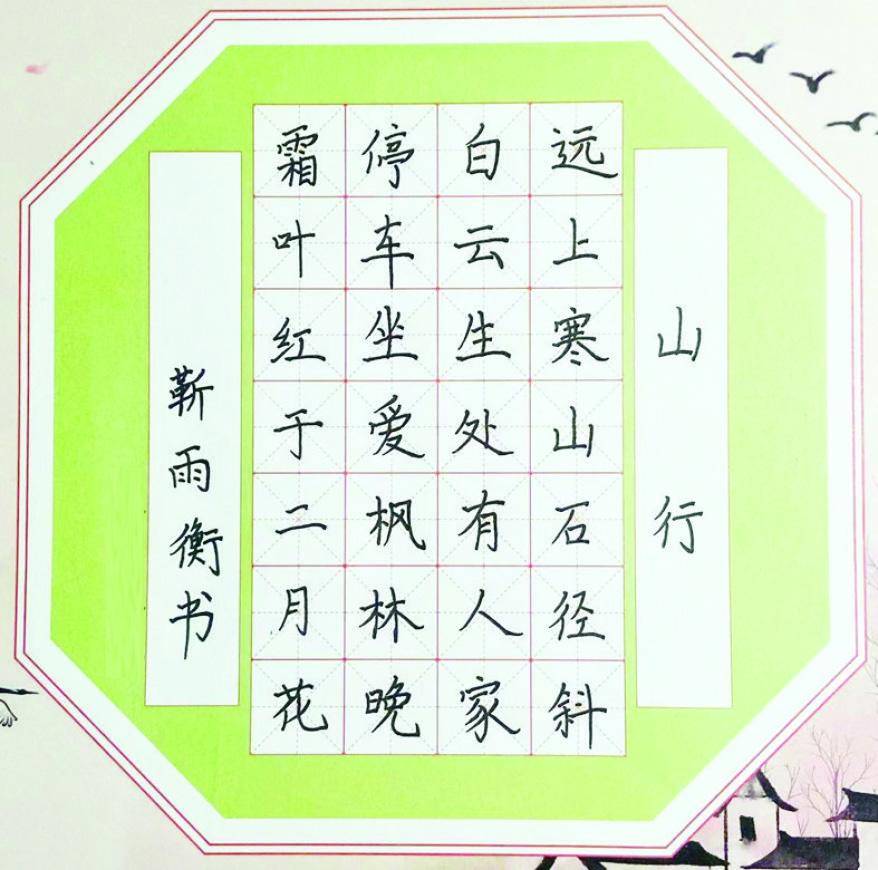 山行
远上寒山石径斜
白云生处有人家
停车坐爱枫林晚
霜叶红于二月花
靳雨衡书